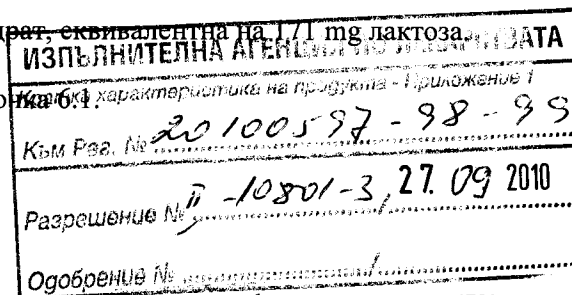 драт, еквивалентна на 171 mg лактоза.
ИЗПЪЛНИТЕЛНА АГЕНЦИЯ ПО ЛЕКАРСТВАТА
Кратка характеристика на продукта - Приложение 1
6.1.
Към Рег. № 20100597-98-99
Разрешение № II-10801-3, 27. 09 2010
Одобрение № ............ / ............